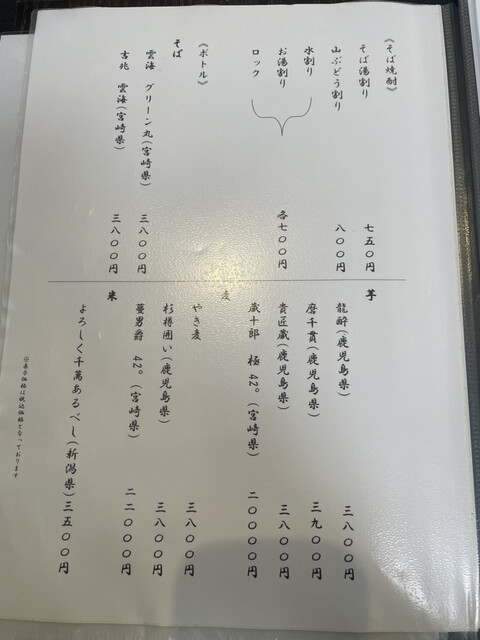 《そば焼酎》
そば湯割り 七五〇円
山ぶどう割り 八〇〇円
水割り
お湯割り 各七〇〇円
ロック
《ボトル》
そば
雲海 グリーン丸(宮崎県) 三八〇〇円
吉兆 雲海(宮崎県) 三八〇〇円
芋
龍酔(鹿児島県) 三八〇〇円
磨千貫(鹿児島県) 三九〇〇円
貴匠蔵(鹿児島県) 三八〇〇円
蔵十郎 極 42°(宮崎県) 二〇〇〇〇円
麦
やき麦 三八〇〇円
杉樽囲い(鹿児島県) 三八〇〇円
蔓男爵 42°(宮崎県) 二二〇〇〇円
米
よろしく千萬あるべし(新潟県)三五〇〇円
※表示価格は税込価格となっております